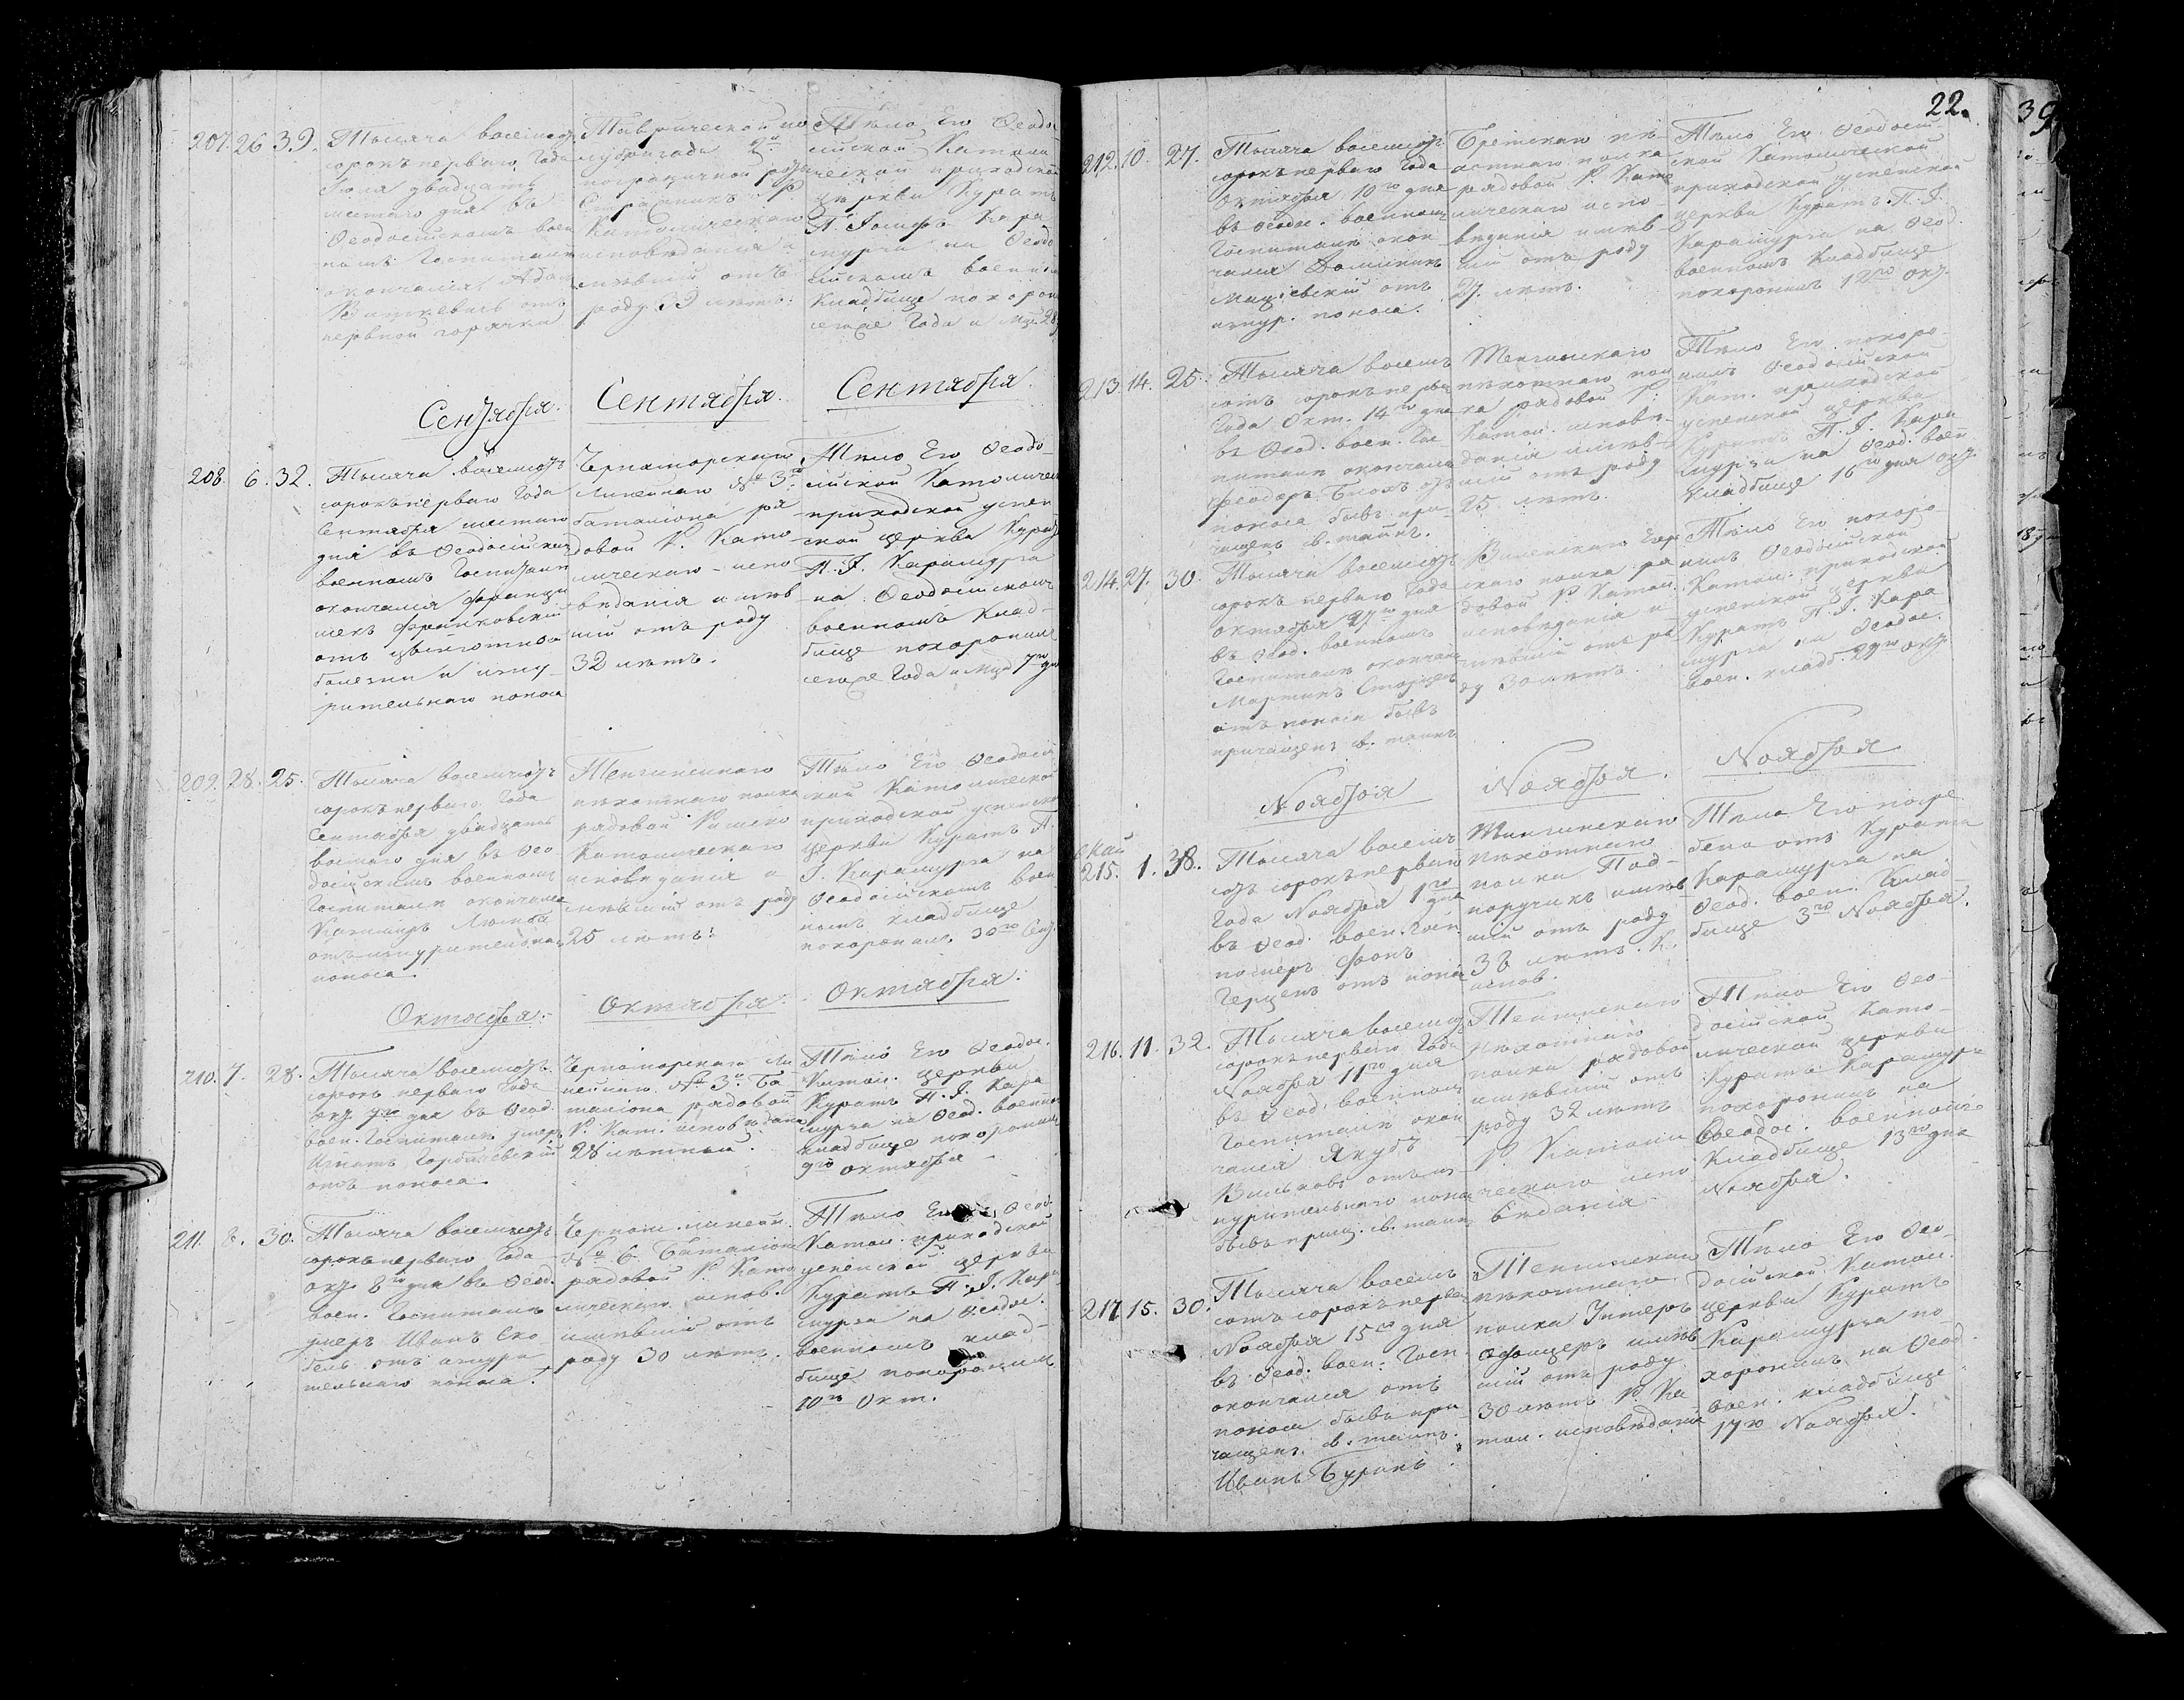 207. 26 39.
Тысяча восемьсотъ
сорокъ перваго Года
Іюля двадцать
шестаго дня въ
Ѳеодосійскомъ воен
номъ Госпитали
окончался Адам
отъ
нервной горячки
Таврической по
лубригады
пограничной
Стражникъ Р.
Католическаго
исповеданія и
мѣвшій отъ
роду 39 лѣтъ.
Тѣло Его Ѳеодо
сійской Католи
ческой приходской
церкви Куратъ
П. Іосифъ Кара
мурза на Ѳеодо
сійскомъ военномъ
Кладбище похорон
сегоже Года и Мца 28
Сентября.
Сентября.
Сентября.
208. 6. 32.
Тысяча восемьсотъ
сорокъ перваго Года
Сентября шестаго
дня въ Ѳеодосійском
военномъ Госпитали
окончался Франци
шекъ Франковскій
отъ цынготной
болезни и изну
рительнаго поноса
Черноморскаго
Линейнаго № 3го
баталіона ря
довой Р. Като
лическаго испо
веданія имѣв
шій отъ роду
32 лѣтъ.
Тѣло Его Ѳеодо
сійской Католичес
приходской успен
ской церкви Куратъ
П. І. Карамурза
на Ѳеодосійскомъ
военномъ Клад
бище похоронилъ
сегоже Года и Мца 7го дня
209. 28. 25.
Тысяча восемьсотъ
сорокъ перваго Года
Сентября двадцать
восмаго дня въ Ѳео
досійскомъ военномъ
Госпитали окончался
Казимиръ
отъ изнурительна
поноса.
Тенгинскаго
пѣхотнаго полка
рядовой Римско
Католическаго
исповеданія и
мѣвшій отъ роду
25 лѣтъ.
Тѣло Его Ѳеодосій
ской Католической
приходской успенско
церкви Куратъ П.
І. Карамурза на
Ѳеодосійскомъ воен
номъ кладбище
похоронилъ 30го Сент.
Октября.
Октября.
Октября.
210. 7. 28.
Тысяча восемьсотъ
сорокъ перваго Года
Окт. 7го дня въ Ѳеод.
воен. Госпитали умер
Игнатъ Горбачевскій
отъ поноса.
Черноморскаго Ли
нейнаго № 3го Ба
таліона рядовой
Р. Кат. исповеданія
28 лѣтный.
Тѣло Его Ѳеодос.
Катол. церкви
Куратъ П. І. Кара
мурза на Ѳеод. военном
кладбище похоронилъ
9го Октября
211. 8. 30.
Тысяча восемьсотъ
сорокъ перваго Года
Окт. 8го дня въ Ѳеод.
воен. Госпитали
умеръ Иванъ Ско
бель отъ изнури
тельнаго поноса.
Черном. линейн.
№ 6 Баталіона
рядовой Р. Като
лическаго испов.
имѣвшій отъ
роду 30 лѣтъ.
Тѣло Его Ѳеод.
Катол. приходской
успенской церкви
Куратъ П. І. Кара
мурза на Ѳеодос.
военномъ клад
бище похоронилъ
10го Окт.
22.
212. 10. 27.
Тысяча восемьсотъ
сорокъ перваго Года
Октября 10го дня
въ Ѳеодос. военномъ
Госпитали окон
чался Доминикъ
Маціевскій отъ
изнур. поноса.
Брестскаго пѣ
хотнаго полка
рядовой Р. Като
лическаго испо
веданія имѣв
шій отъ роду
27. лѣтъ.
Тѣло Его Ѳеодосій
ской Католической
приходской успенской
церкви Куратъ П. І.
Карамурза на Ѳеод.
военномъ Кладбище
похоронилъ 12го Окт.
213. 14. 25.
Тысяча восемь
сотъ сорокъ перваго
Года Окт. 14го дня
въ Ѳеод. воен. Гос
питали окончался
Феодоръ Блохъ отъ
поноса бывъ при
чащенъ св. таинъ.
Тенгинскаго
пѣхотнаго пол
ка рядовой Р.
Катол. испове
данія имѣв
шій отъ роду
25 лѣтъ.
Тѣло Его похоро
нилъ Ѳеодосійской
Кат. приходской
успенской церкви
Куратъ П. І. Кара
мурза на Ѳеод. воен
кладбище 16го дня Окт.
214. 27. 30.
Тысяча восемьсотъ
сорокъ перваго Года
Октября 27го дня
въ Ѳеод. военномъ
Госпитали окончал
Мартинъ
отъ поноса бывъ
причащенъ св. таинъ
Виленскаго Егер
скаго полка ря
довой Р. Катол.
исповеданія и
мѣвшій отъ ро
ду 30 лѣтъ.
Тѣло Его похоро
нилъ Ѳеодосійской
Катол. приходской
успенской церкви
Куратъ П. І. Кара
мурза на Ѳеодос.
воен. кладб. 29го Окт.
Ноября
Ноября.
Ноября
215. 1. 38.
Тысяча восемь
сотъ сорокъ перваго
Года Ноября 1го дня
въ Ѳеод. воен. Госп.
померъ Фонъ
Герценъ отъ поноса
Тенгинскаго
пѣхотнаго
полка Под
поручикъ имѣв
шій отъ роду
38 лѣтъ. К.
испов.
Тѣло Его погре
бено отъ Курата
Карамурза на
Ѳеод. воен. Клад
бище 3го Ноября.
216. 11. 32.
Тысяча восемьсотъ
сорокъ перваго Года
Ноября 11го дня
въ Ѳеод. военномъ
Госпитали окон
чался Якубъ
отъ из
нурительнаго поноса
бывъ прич. св. таинъ
Тенгинскаго
пѣхотнаго
полка рядовой
имѣвшій отъ
роду 32 лѣтъ
Р. Католи
ческаго испо
веданія
Тѣло Его Ѳео
досійской Като
лической церкви
Куратъ Карамурз
похоронилъ на
Ѳеодос. военномъ
Кладбище 13го дня
Ноября.
217. 15. 30.
Тысяча восемь
сотъ сорокъ перваго
Ноября 15го дня
въ Ѳеод. воен. Госп.
окончался отъ
поноса бывъ при
чащенъ св. таинъ.
Иванъ Буракъ
Тенгинскаго
пѣхотнаго
полка Унтеръ
Офицеръ имѣв
шій отъ роду
30 лѣтъ Р. Ка
тол. исповѣданія
Тѣло Его Ѳео
досійской Катол.
церкви Куратъ
Карамурза по
хоронилъ на Ѳеод.
воен. кладбище
17го Ноября.